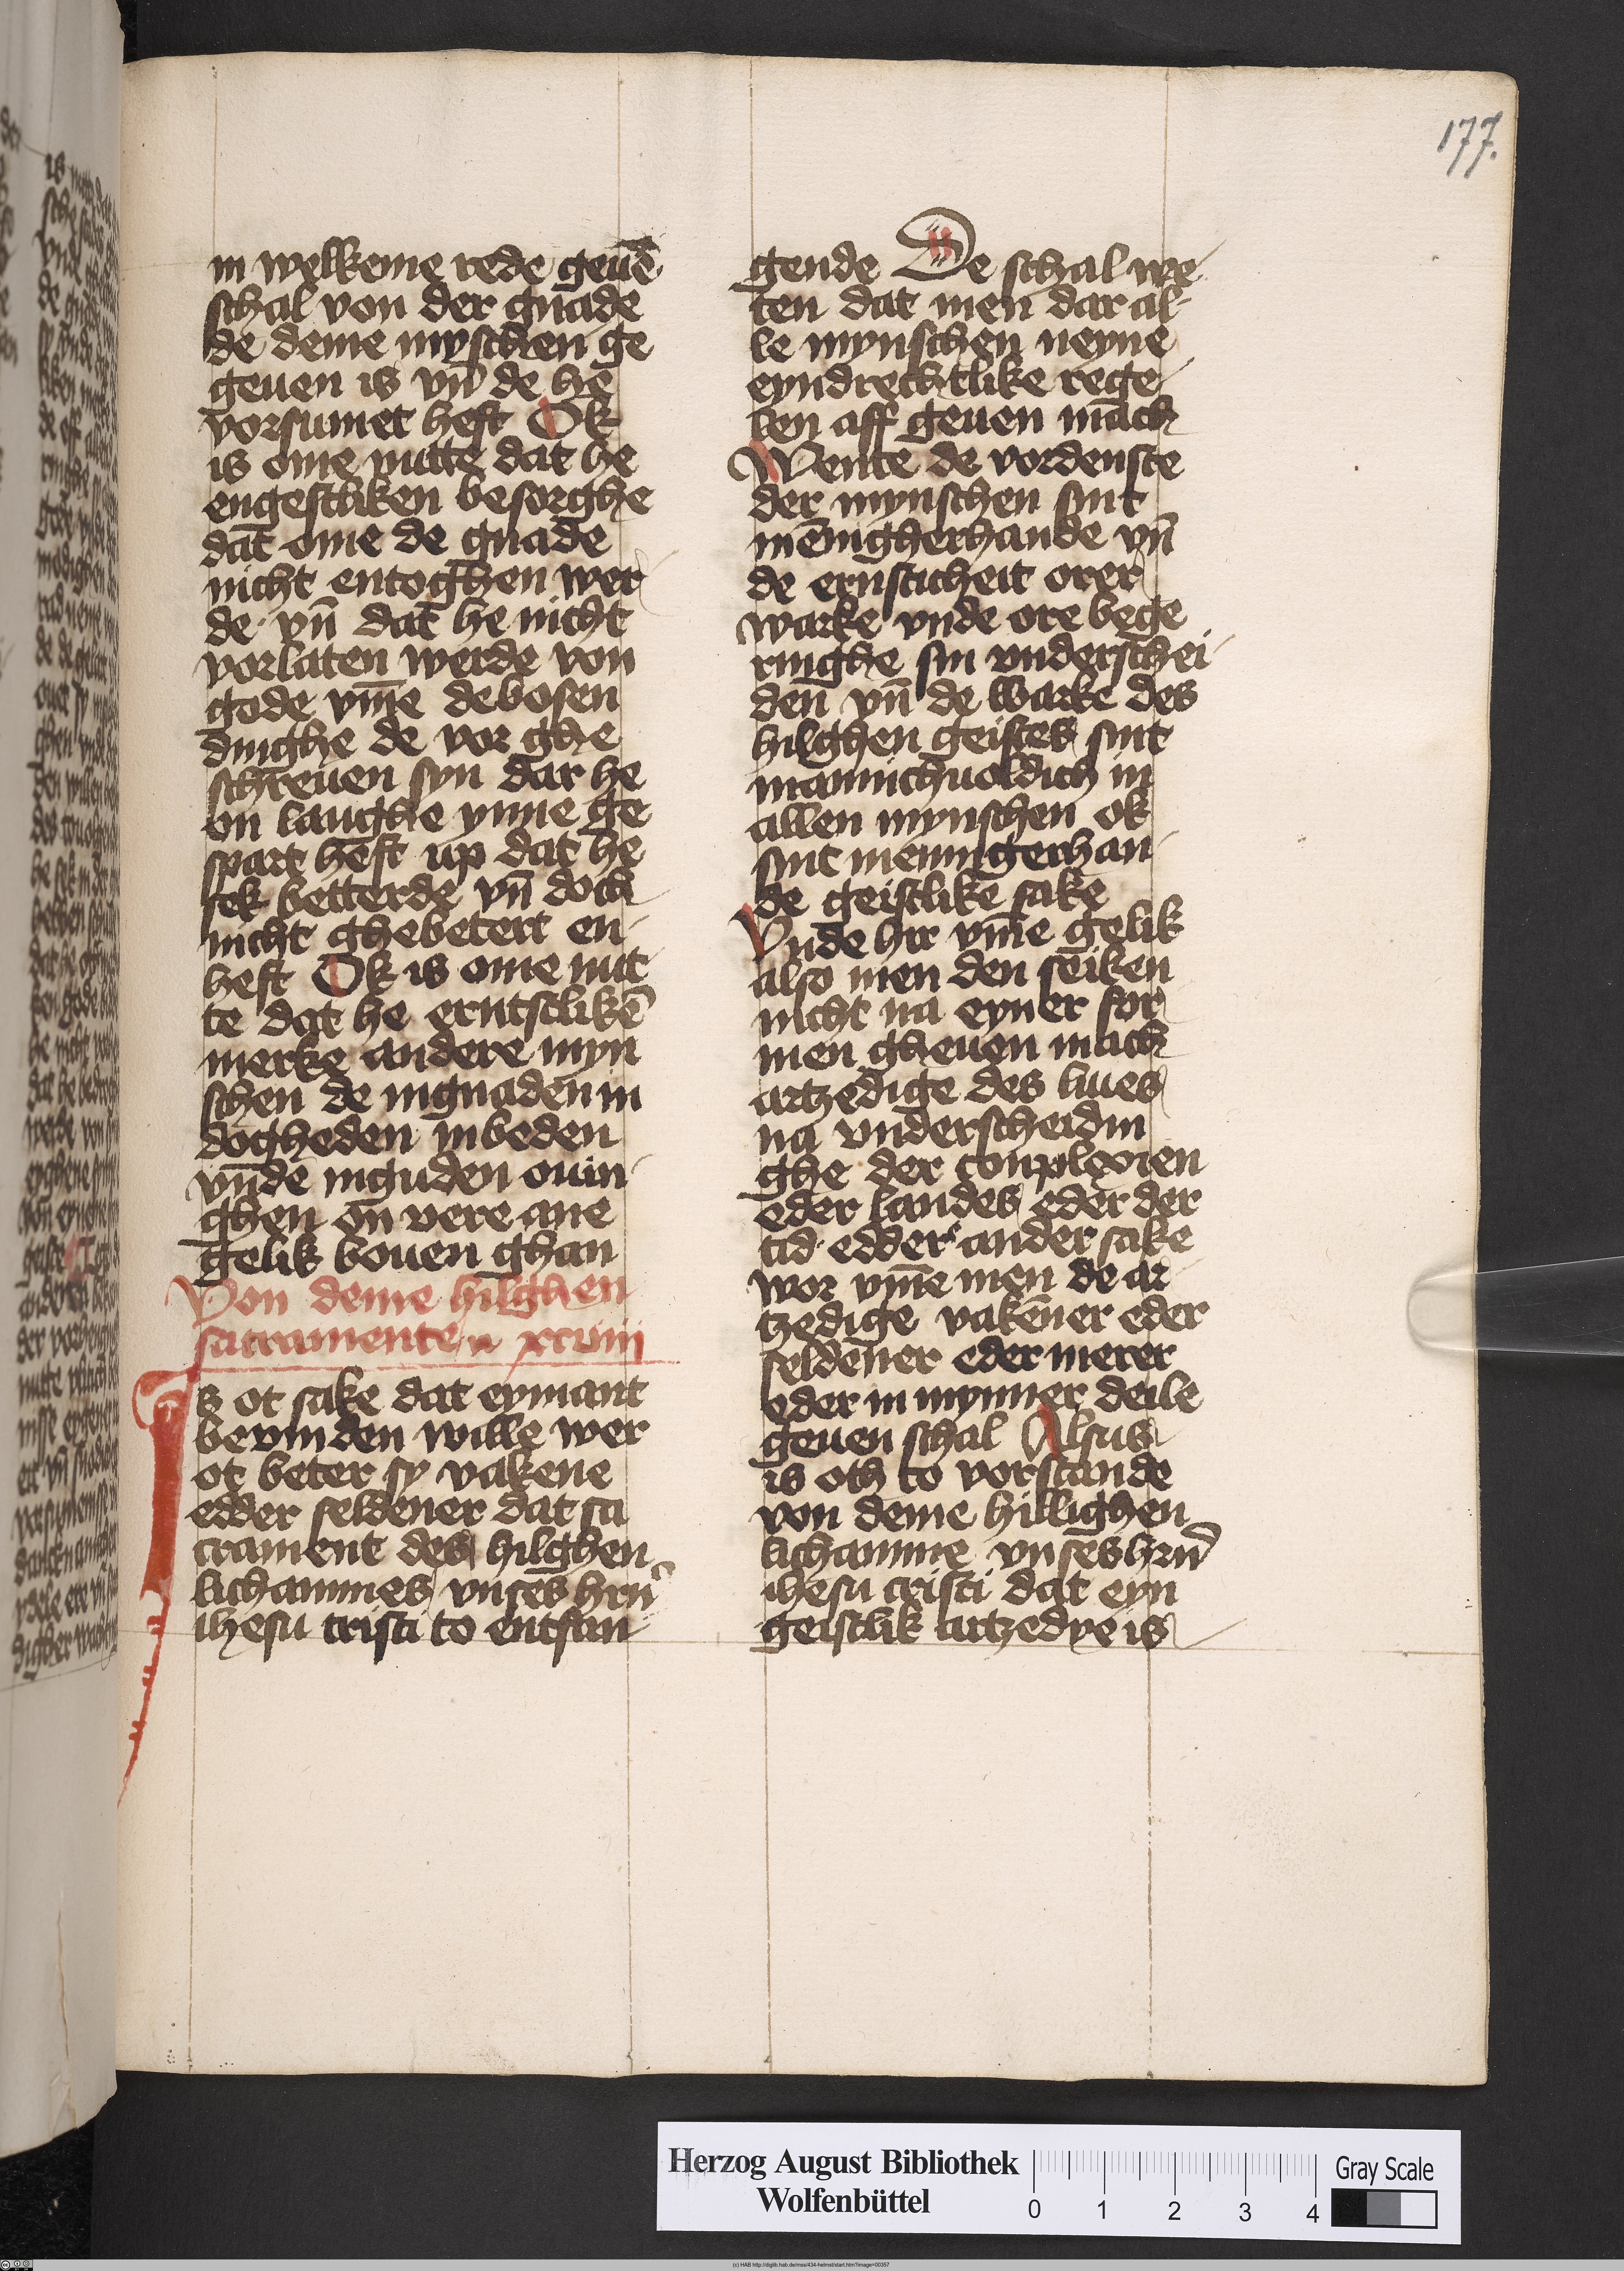 177.
in welkeme rede geuē
schal von der gnade
de deme myschen ge
geuen is vn̄ de he
vorsumet heft Ok
is ome nutte dat he
engestliken besorghe
dat ome de gnade
nicht entoghen wer
de · vn̄ dat he nicht
vorlaten werde von
gode vm̄e de bosen
dinghe de vor ghe
schreuen syn dar he
on langhe ynne ge
spart heft up dat he
sek betterde vn̄ doch
nicht ghebetert en-
heft Ok is ome nut
te dat he erntstlikē
merke andere myn
schen de in gnaden in
dogheden in beden
vn̄de in guden ouin-
ghen on vere ane
gelik bouen ghan
Von deme hilghen
sacramente xcviii
Is ot sake dat eymant
bevinden wille wer
ot beter sy vakene
edder seldener dat sa
crament des hilghen
lichammes vnses hrn̄
ihesu cristi to entfan-
gende De schal we-
ten dat men dar al-
le mynschen neyne
eyndrechtlike rege-
len aff geuen mach
Wente de vordenste
der mynschen sint
mēnigherhande vn̄
de ernsticheit orer
warke vnde ore bege
ringhe sin vnderschei-
den vn̄ de warke des
hilghen geistes sint
mannichuoldich in
allen mynschen ok
sint menningerhan-
de geistlike sake
Vnde hir vm̄e gelik
also men den seiken
nicht na eyner for
men gheuen mach
artzedige des liues
na vnderscheidin
ghe der conplexien
eder landes eder der
tid · edder ander sake
wor vm̄e men de ar-
tzedige vakener eder
seldener eder merer
eder in mynner deile
geuen schal Alsus
is oth to vorstande
von deme hillighen
lichamme vnses hrn̄
ihesu cristi dat eyn
geistlik artzedye is
Herzog August Bibliothek
Wolfenbüttel
0 1 2 3 4
Gray Scale
(c) HAB http://diglib.hab.de/mss/434-helmst/start.htm?image=00357